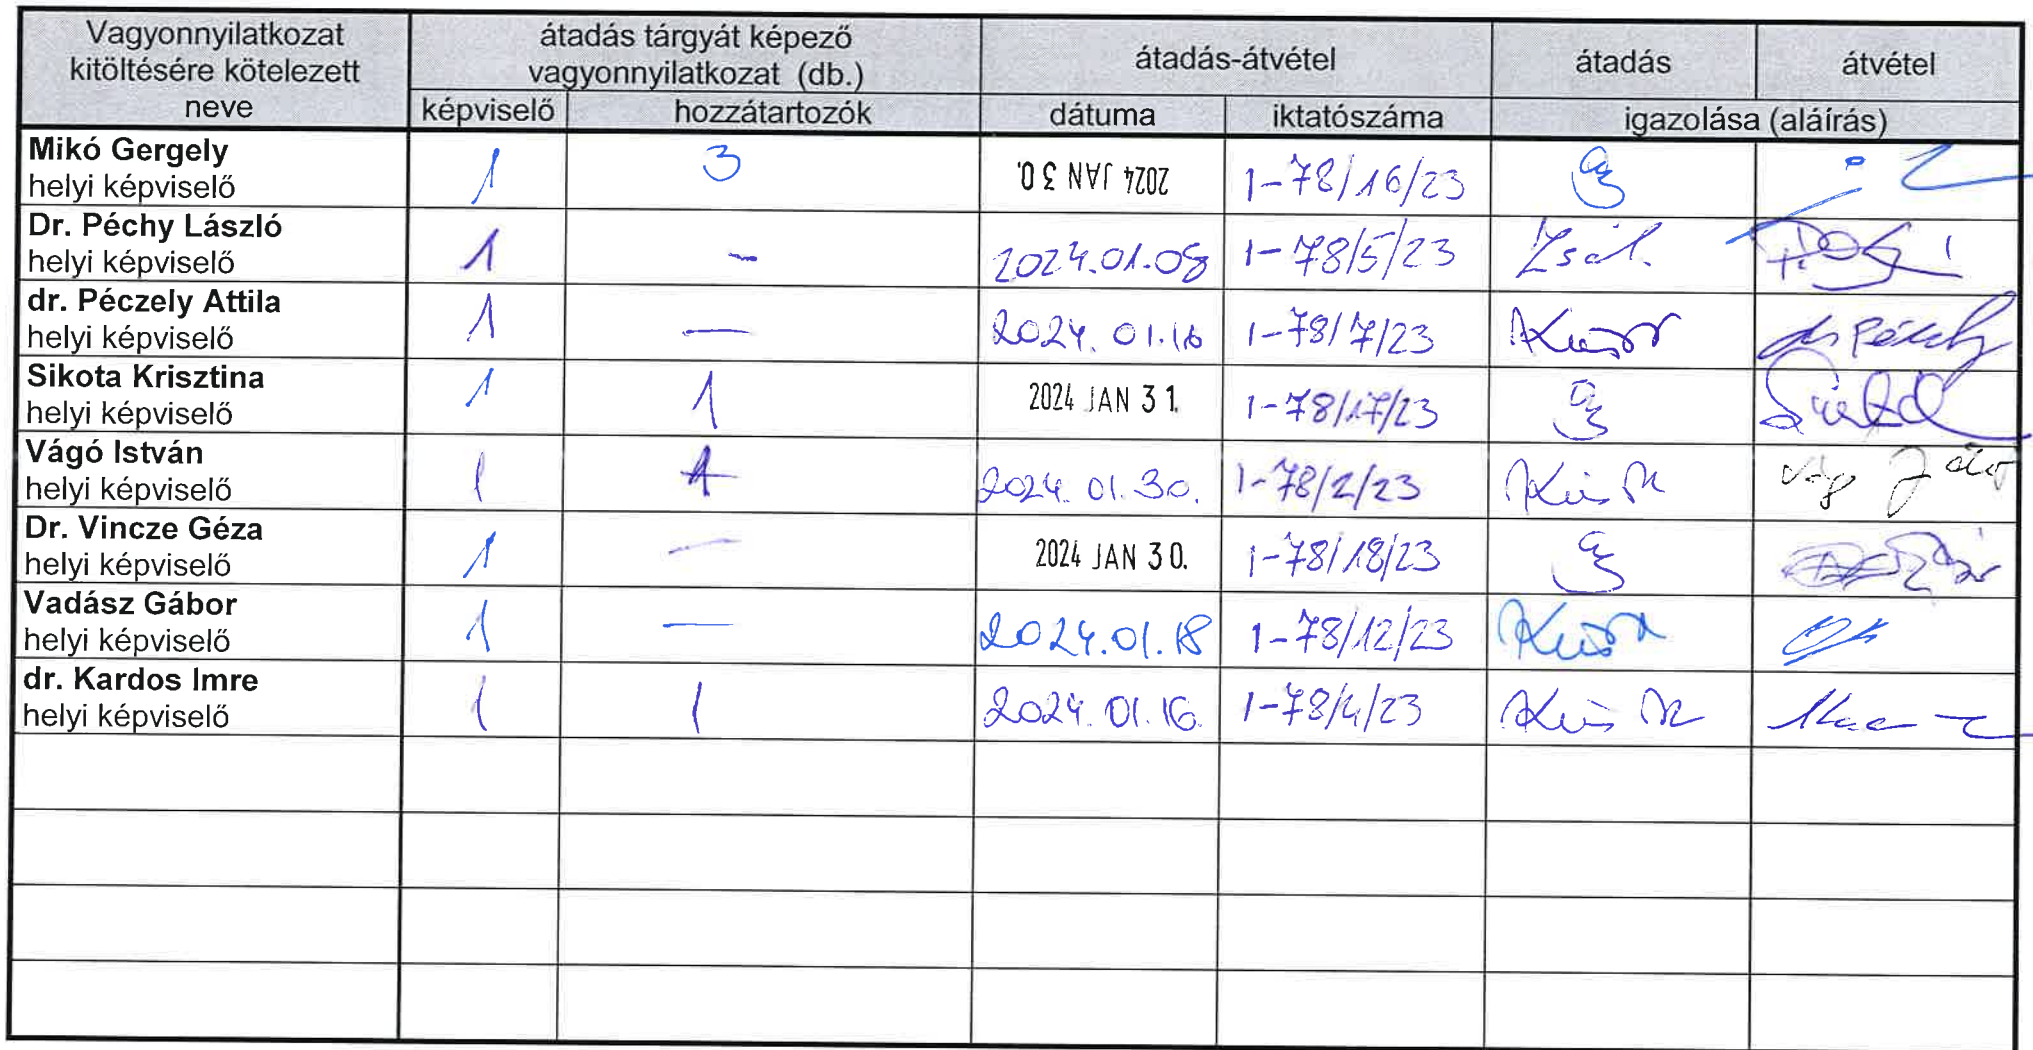 Vagyonnyilatkozat kitöltésére kötelezett neve
átadás tárgyát képező vagyonnyilatkozat (db.)
átadás-átvétel
átadás
átvétel
képviselő
hozzátartozók
dátuma
iktatószáma
igazolása (aláírás)
Mikó Gergely
helyi képviselő
1 3 2024 JAN 30. 1-78/16/23
Dr. Péchy László
helyi képviselő
1 - 2024.01.08 1-78/5/23
dr. Péczely Attila
helyi képviselő
1 - 2024. 01.16 1-78/7/23
Sikota Krisztina
helyi képviselő
1 1 2024 JAN 31. 1-78/17/23
Vágó István
helyi képviselő
1 1 2024. 01.30. 1-78/2/23
Dr. Vincze Géza
helyi képviselő
1 - 2024 JAN 30. 1-78/18/23
Vadász Gábor
helyi képviselő
1 - 2024.01.18 1-78/12/23
dr. Kardos Imre
helyi képviselő
1 1 2024. 01.16. 1-78/4/23